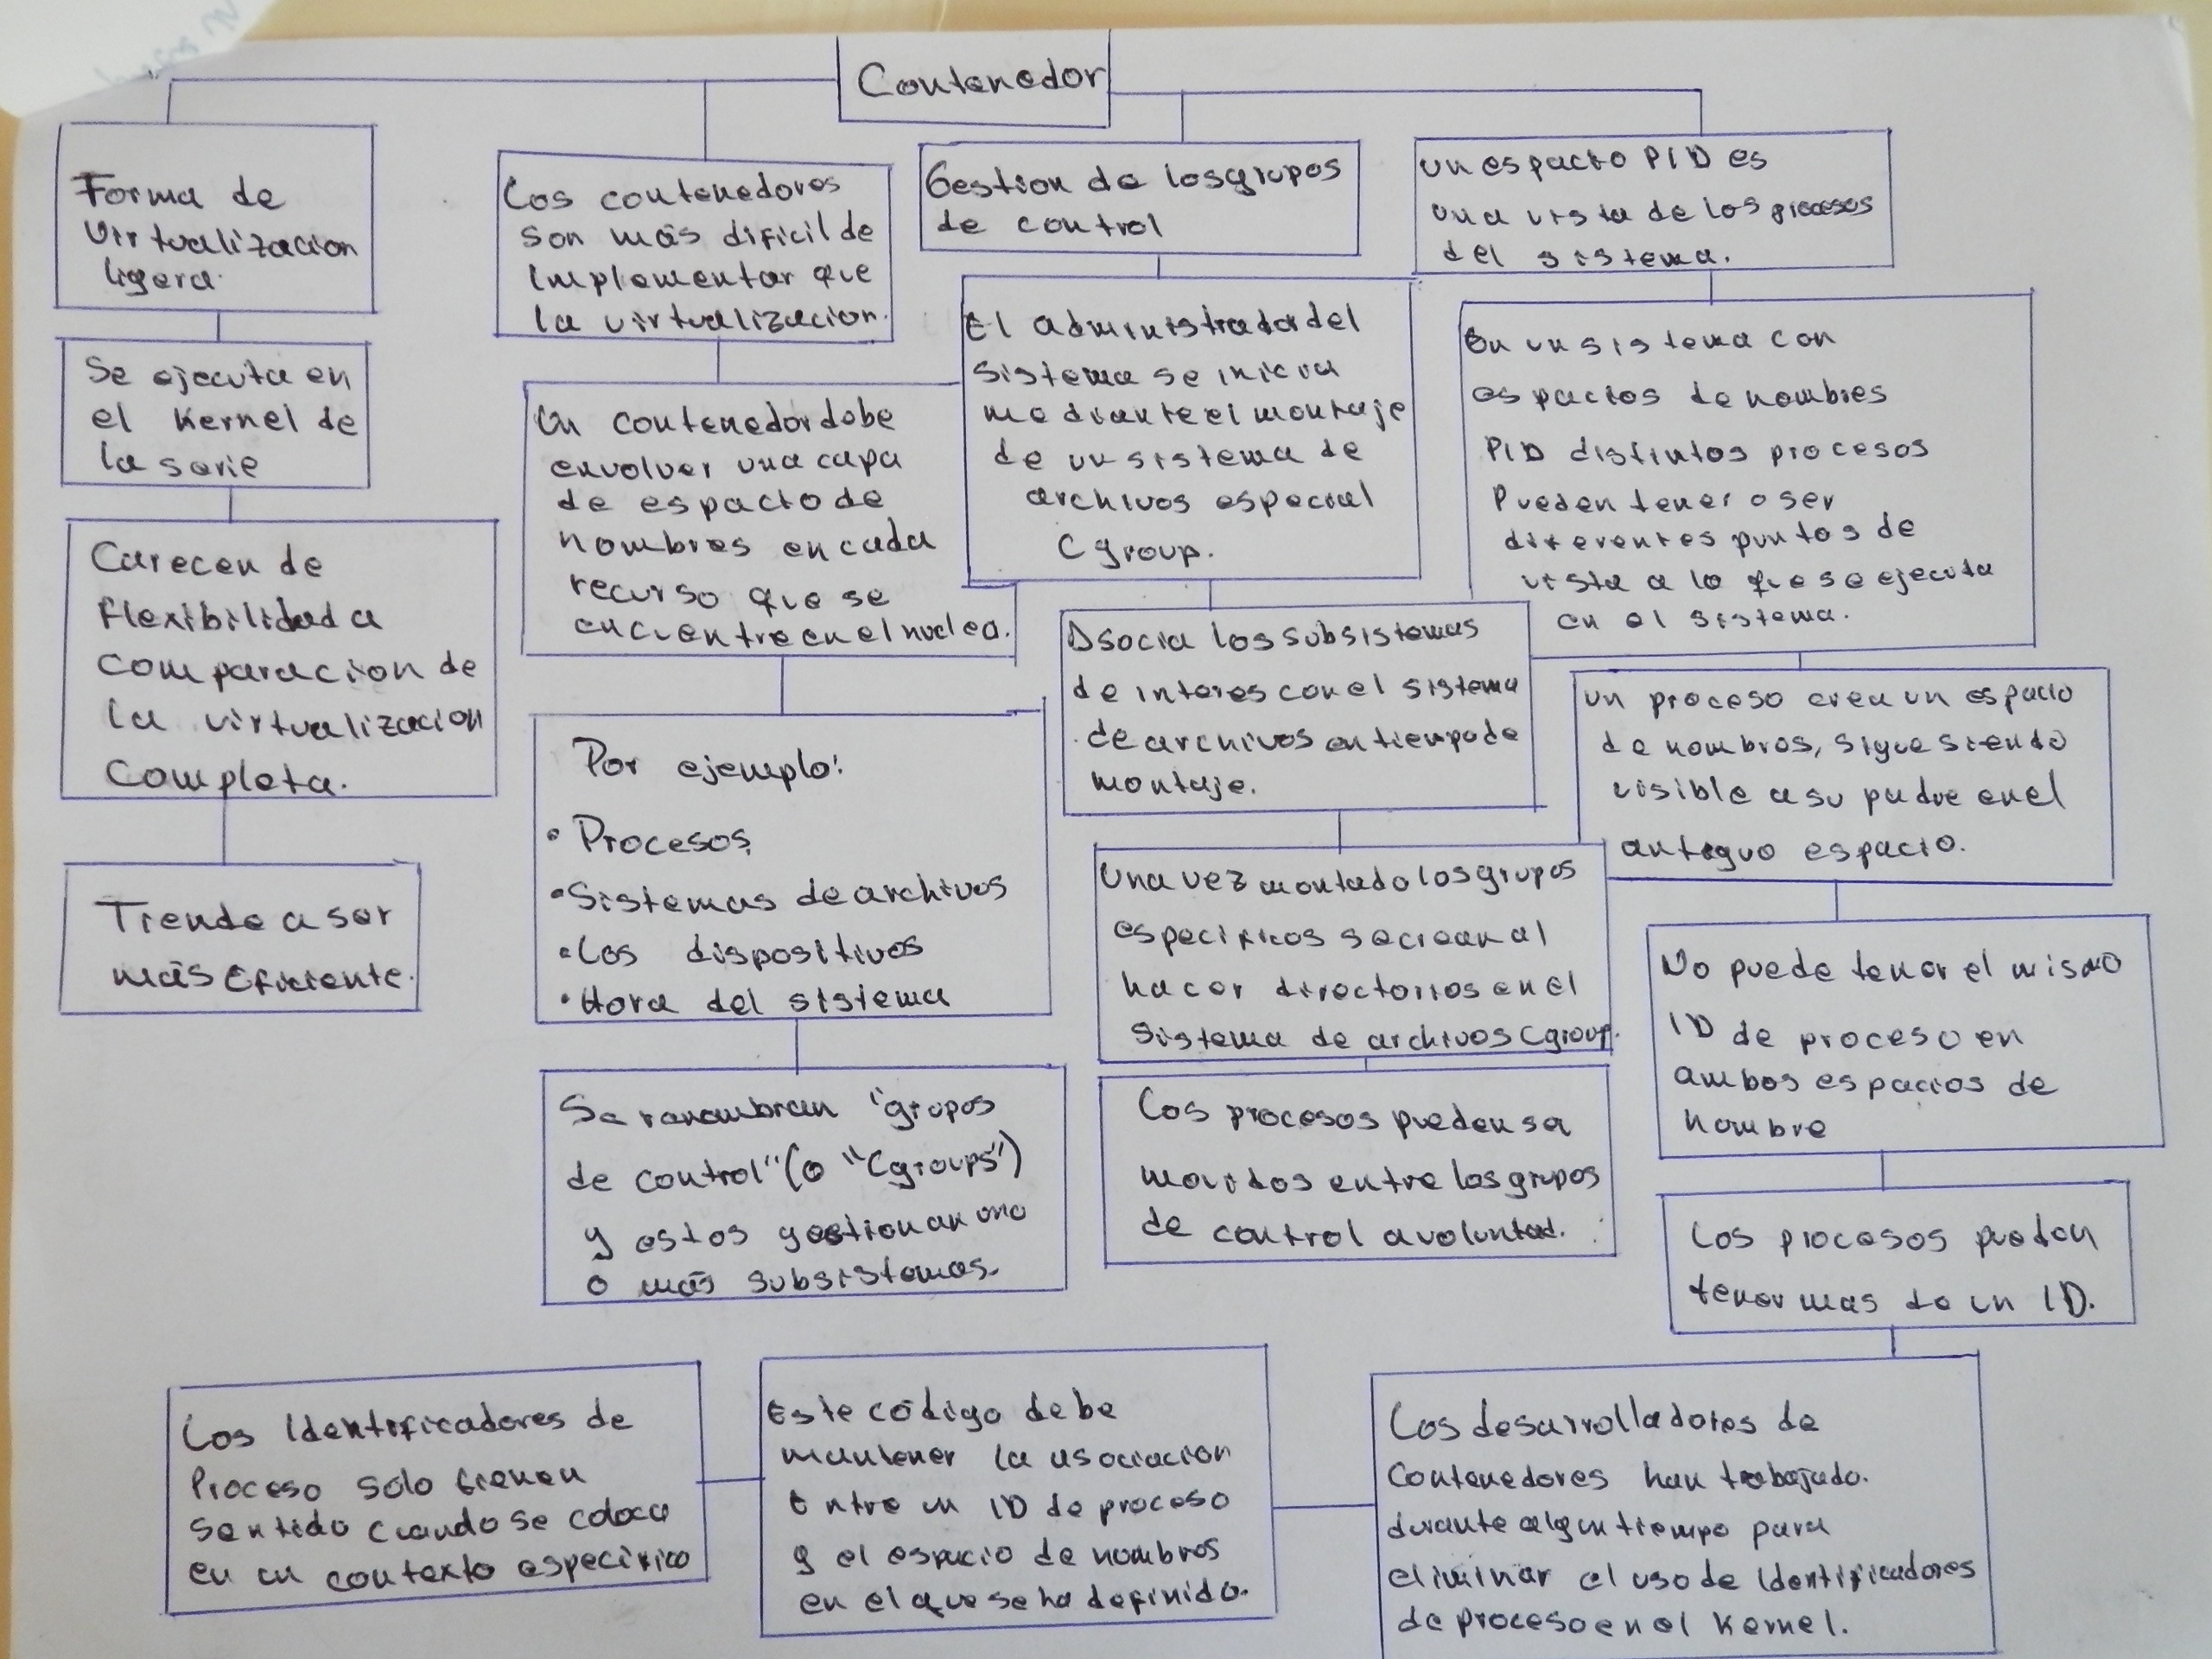 Contenedor
Forma de
Virtualizacion
ligera.
Se ejecuta en
el Kernel de
la serie
Carecen de
flexibilidad a
comparacion de
la virtualizacion
Completa.
Tiende a ser
más Eficiente.
Los contenedores
son más dificil de
implementar que
la virtualizacion.
Un contenedor debe
envolver una capa
de espacio de
nombres en cada
recurso que se
encuentre en el nucleo.
Por ejemplo:
• Procesos,
• Sistemas de archivos
• Los dispositivos
• Hora del sistema
Se renombran "grupos
de control" (o "Cgroups")
y estos gestionan uno
o más subsistemas.
Gestion de los grupos
de control
El administrador del
sistema se inicia
mediante el montaje
de un sistema de
archivos especial
Cgroup.
Asocia los subsistemas
de interes con el sistema
de archivos en tiempo de
montaje.
Una vez montado los grupos
especificos se crean al
hacer directorios en el
Sistema de archivos Cgroup.
Los procesos pueden ser
movidos entre los grupos
de control a voluntad.
Un espacio PID es
una vista de los procesos
del sistema.
En un sistema con
espacios de nombres
PID distintos procesos
Pueden tener o ser
diferentes puntos de
vista a lo que se ejecuta
en el sistema.
Un proceso crea un espacio
de nombres, sigue siendo
visible a su padre en el
antiguo espacio.
No puede tener el mismo
ID de proceso en
ambos espacios de
nombre
Los procesos pueden
tener mas de un ID.
Los desarrolladores de
Contenedores han trabajado.
durante algun tiempo para
eliminar el uso de Identificadores
de proceso en el Kernel.
Este código debe
mantener la asociacion
Entre un ID de proceso
y el espacio de nombres
en el que se ha definido.
Los Identificadores de
Proceso solo tienen
Sentido cuando se coloca
en un contexto especifico